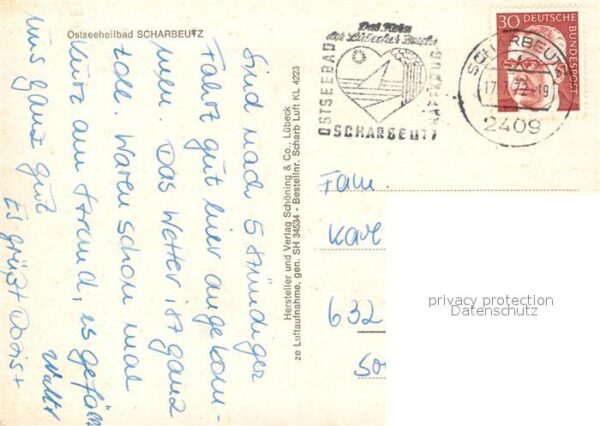 Ostseeheilbad SCHARBEUTZ
Sind nach 5 stündiger
Fahrt gut hier angekom-
men. Das Wetter ist ganz
toll. Waren schon mal
kurz am Strand, es gefällt
uns ganz gut
Es grüßt Doris +
Walter
Hersteller und Verlag Schöning & Co., Lübeck
ze Luftaufnahme, gen. SH 34534 - Bestellnr. Scharb Luft KL 4223
Das Herz
der Lübecker Bucht
OSTSEEBAD
SCHARBEUTZ
30 DEUTSCHE
BUNDESPOST
SCHARBEUTZ
2409
Fam.
632
privacy protection
Datenschutz